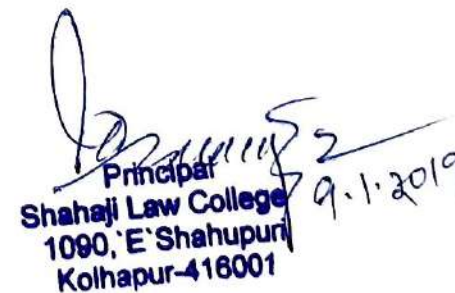 Principal
Shahaji Law College
1090,`E`Shahupuri
Kolhapur-416001
9.1.2019